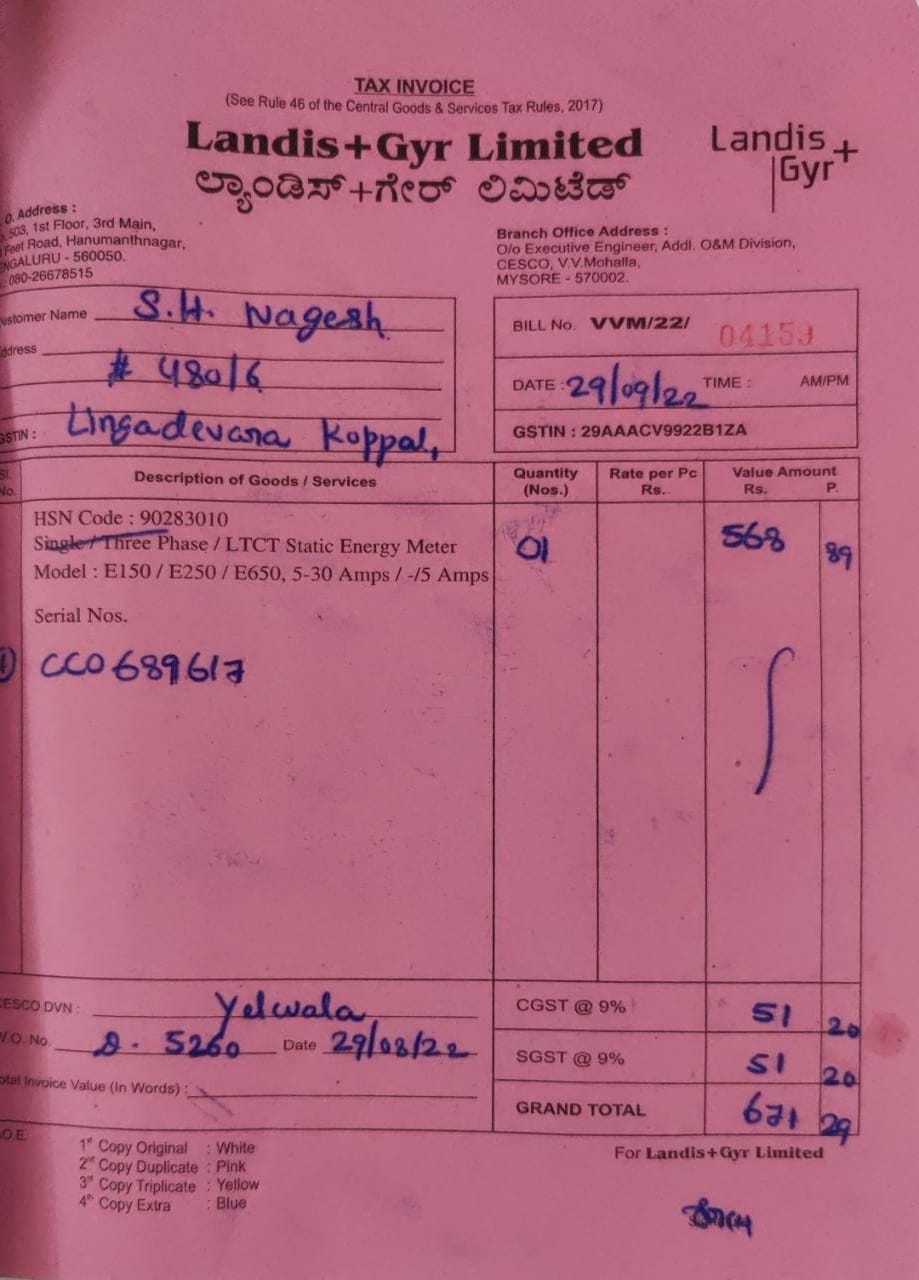 TAX INVOICE
(See Rule 46 of the Central Goods & Services Tax Rules, 2017)
Landis+Gyr Limited
ಲ್ಯಾಂಡಿಸ್+ಗೇರ್ ಲಿಮಿಟೆಡ್
Landis+
Gyr
O. Address :
503, 1st Floor, 3rd Main,
Feet Road, Hanumanthnagar,
NGALURU - 560050.
080-26678515
Branch Office Address :
O/o Executive Engineer, Addl. O&M Division,
CESCO, V.V.Mohalla,
MYSORE - 570002.
ustomer Name S.H. Nagesh
ddress
# 480/6
GSTIN : Lingadevara Koppal,
BILL No. VVM/22/ 04159
DATE : 29/09/22 TIME : AM/PM
GSTIN : 29AAACV9922B1ZA
Sl. No. Description of Goods / Services Quantity (Nos.) Rate per Pc Rs. Value Amount Rs. P.
HSN Code : 90283010
Single / Three Phase / LTCT Static Energy Meter 01 568 89
Model : E150 / E250 / E650, 5-30 Amps / -/5 Amps
Serial Nos.
1) CC0689617
CESCO DVN : Yelwala
W.O. No. D. 5260 Date 29/08/22
otal Invoice Value (In Words) :
CGST @ 9% 51 20
SGST @ 9% 51 20
GRAND TOTAL 671 29
.O.E.
1st Copy Original : White
2nd Copy Duplicate : Pink
3rd Copy Triplicate : Yellow
4th Copy Extra : Blue
For Landis+Gyr Limited